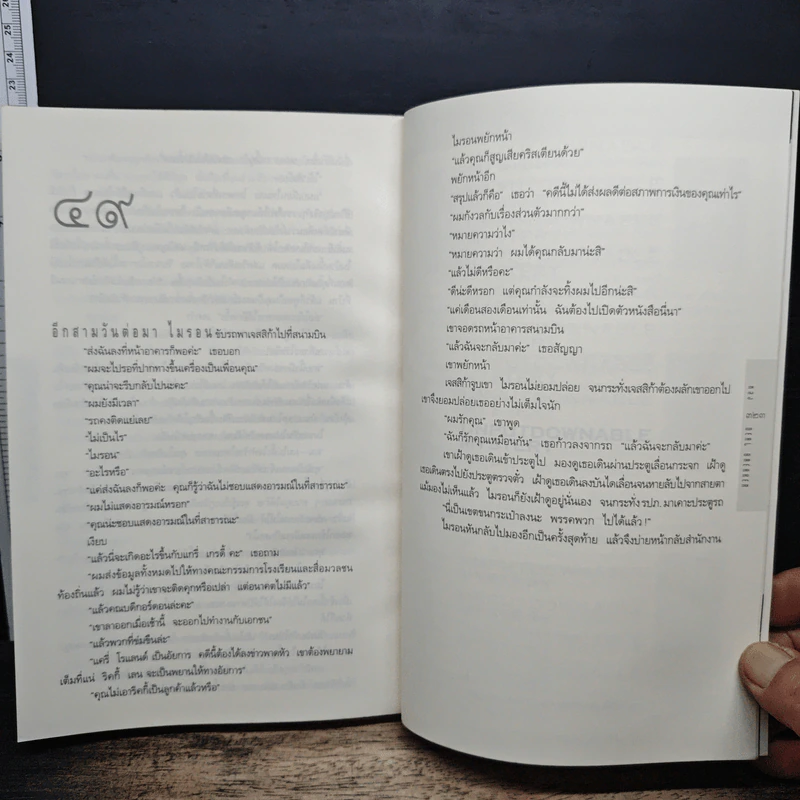 ๔๙
อีกสามวันต่อมา ไมรอนขับรถพาเจสสิก้าไปที่สนามบิน
"ส่งฉันลงที่หน้าอาคารก็พอค่ะ" เธอบอก
"ผมจะไปรอที่ปากทางขึ้นเครื่องเป็นเพื่อนคุณ"
"คุณน่าจะรีบกลับไปนะคะ"
"ผมยังมีเวลา"
"รถคงติดแย่เลย"
"ไม่เป็นไร"
"ไมรอน"
"อะไรหรือ"
"แค่ส่งฉันลงก็พอค่ะ คุณก็รู้ว่าฉันไม่ชอบแสดงอารมณ์ในที่สาธารณะ"
"ผมไม่แสดงอารมณ์หรอก"
"คุณน่ะชอบแสดงอารมณ์ในที่สาธารณะ"
เงียบ
"แล้วนี่จะเกิดอะไรขึ้นกับแกรี่ เกรดี้ คะ" เธอถาม
"ผมส่งข้อมูลทั้งหมดไปให้ทางคณะกรรมการโรงเรียนและสื่อมวลชน
ท้องถิ่นแล้ว ผมไม่รู้ว่าเขาจะติดคุกหรือเปล่า แต่อนาคตไม่มีแล้ว"
"แล้วคณบดีกอร์ดอนล่ะคะ"
"เขาลาออกเมื่อเช้านี้ จะออกไปทำงานกับเอกชน"
"แล้วพวกที่ข่มขืนล่ะ"
"แครี่ โรแลนด์ เป็นอัยการ คดีนี้ต้องได้ลงข่าวพาดหัว เขาต้องพยายาม
เต็มที่แน่ ริคกี้ เลน จะเป็นพยานให้ทางอัยการ"
"คุณไม่เอาริคกี้เป็นลูกค้าแล้วหรือ"
ไมรอนพยักหน้า
"แล้วคุณก็สูญเสียคริสเตียนด้วย"
พยักหน้าอีก
"สรุปแล้วก็คือ" เธอว่า "คดีนี้ไม่ได้ส่งผลดีต่อสภาพการเงินของคุณเท่าไร"
"ผมกังวลกับเรื่องส่วนตัวมากกว่า"
"หมายความว่าไง"
"หมายความว่า ผมได้คุณกลับมาน่ะสิ"
"แล้วไม่ดีหรือคะ"
"ดีน่ะดีหรอก แต่คุณกำลังจะทิ้งผมไปอีกน่ะสิ"
"แค่เดือนสองเดือนเท่านั้น ฉันต้องไปเปิดตัวหนังสือนี่นา"
เขาจอดรถหน้าอาคารสนามบิน
"แล้วฉันจะกลับมาค่ะ" เธอสัญญา
เขาพยักหน้า
เจสสิก้าจูบเขา ไมรอนไม่ยอมปล่อย จนกระทั่งเจสสิก้าต้องผลักเขาออกไป
เขาจึงยอมปล่อยเธออย่างไม่เต็มใจนัก
"ผมรักคุณ" เขาพูด
"ฉันก็รักคุณเหมือนกัน" เธอก้าวลงจากรถ "แล้วฉันจะกลับมาค่ะ"
เขาเฝ้าดูเธอเดินเข้าประตูไป มองดูเธอเดินผ่านประตูเลื่อนกระจก เฝ้าดู
เธอเดินตรงไปยังประตูตรวจตั๋ว เฝ้าดูเธอเดินลงบันไดเลื่อนจนหายลับไปจากสายตา
แม้มองไม่เห็นแล้ว ไมรอนก็ยังเฝ้าดูอยู่นั่นเอง จนกระทั่ง รปภ. มาเคาะประตูรถ
"นี่เป็นเขตขนกระเป๋าลงนะ พรรคพวก ไปได้แล้ว !"
ไมรอนหันกลับไปมองอีกเป็นครั้งสุดท้าย แล้วจึงบ่ายหน้ากลับสำนักงาน
๓๒๓